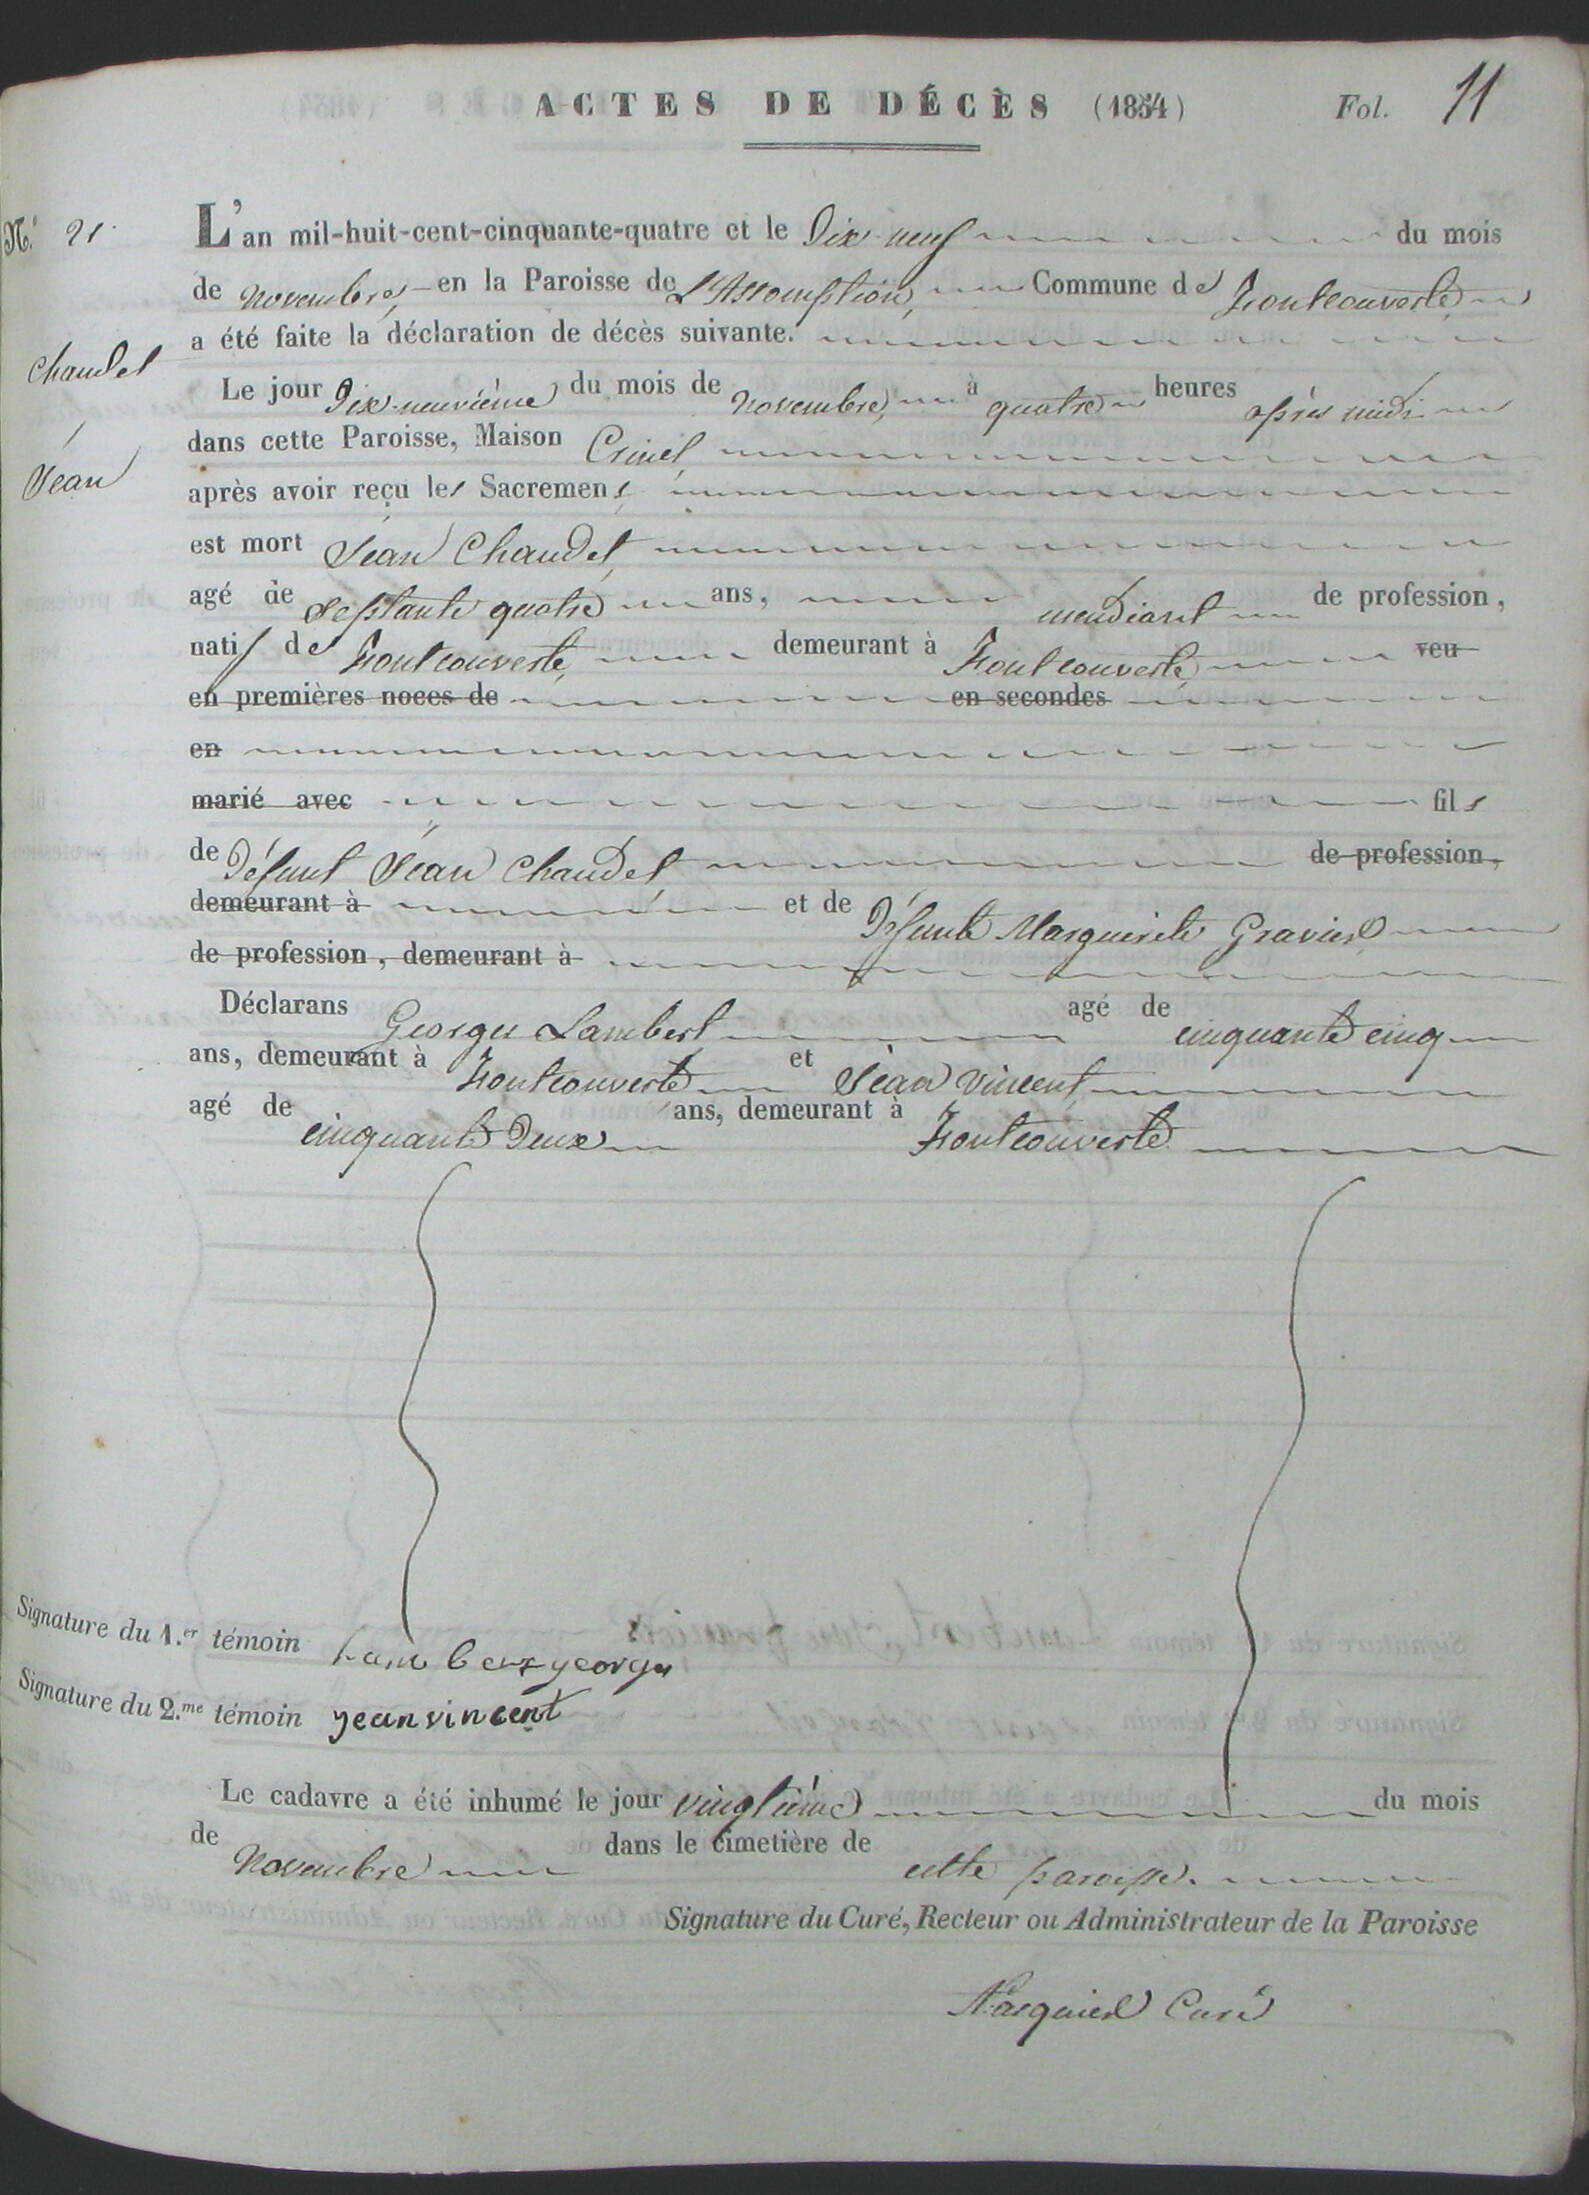 ACTES DE DÉCÈS (1854) Fol. 11
N.º 21. L'an mil-huit-cent-cinquante-quatre et le Dix neuf du mois
de novembre, en la Paroisse de L'Assomption, Commune de Fontcouverte
a été faite la déclaration de décès suivante.
Chaudet
Jean
Le jour Dix-neuvième du mois de novembre, à quatre heures après midi
dans cette Paroisse, Maison
après avoir reçu les Sacremens,
est mort Jean Chaudet,
agé de septante quatre ans, mendiant de profession,
natif de Fontcouverte, demeurant à Fontcouverte, veu
en premières noces de en secondes
en
marié avec fils
de Défunt Jean Chaudet de profession,
demeurant à et de Défunte Marguerite Gravier
de profession, demeurant à
Déclarans Georges Lambert agé de cinquante cinq
ans, demeurant à Fontcouverte et Jean Vincent,
agé de cinquante Deux ans, demeurant à Fontcouverte
Signature du 1.er témoin Lambert georges
Signature du 2.me témoin jean vincent
Le cadavre a été inhumé le jour vingtième du mois
de Novembre dans le cimetière de cette paroisse.
Signature du Curé, Recteur ou Administrateur de la Paroisse
Curé